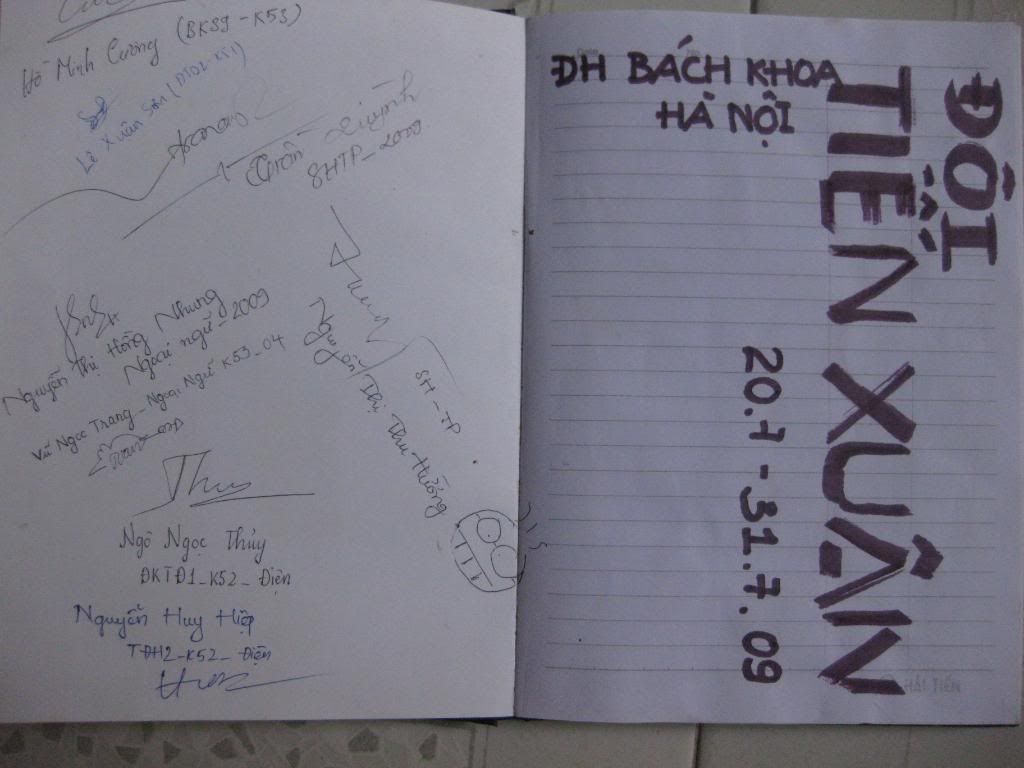 Hồ Minh Cường (BK39-K53)
Lê Xuân Sơn (ĐT02-K51)
Trần Quỳnh
SHTP_2009
Nguyễn Thị Hồng Nhung
Ngoại ngữ-2009
Vũ Ngọc Trang_Ngoại Ngữ K53_04
SH-TP
Nguyễn Thị Thu Hường
Thuy
Ngô Ngọc Thủy
ĐKTĐ1_K52_Điện
Nguyễn Huy Hiệp
TĐH2_K52_Điện
ĐH BÁCH KHOA
HÀ NỘI.
ĐỘI
TIẾN XUÂN
20.7-31.7.09
HẢI TIẾN